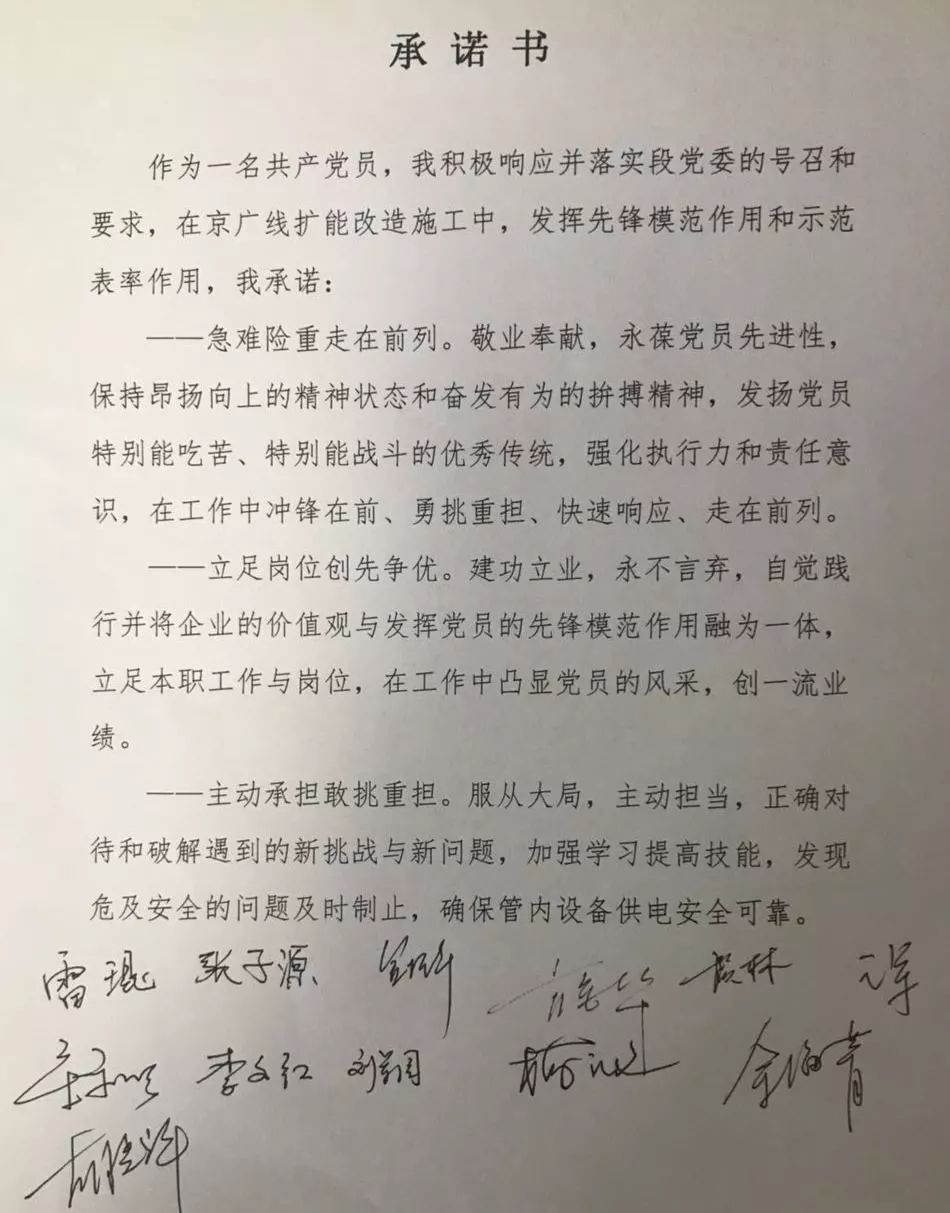 承诺书
作为一名共产党员，我积极响应并落实段党委的号召和
要求，在京广线扩能改造施工中，发挥先锋模范作用和示范
表率作用，我承诺：
——急难险重走在前列。敬业奉献，永葆党员先进性，
保持昂扬向上的精神状态和奋发有为的拚搏精神，发扬党员
特别能吃苦、特别能战斗的优秀传统，强化执行力和责任意
识，在工作中冲锋在前、勇挑重担、快速响应、走在前列。
——立足岗位创先争优。建功立业，永不言弃，自觉践
行并将企业的价值观与发挥党员的先锋模范作用融为一体，
立足本职工作与岗位，在工作中凸显党员的风采，创一流业
绩。
——主动承担敢挑重担。服从大局，主动担当，正确对
待和破解遇到的新挑战与新问题，加强学习提高技能，发现
危及安全的问题及时制止，确保管内设备供电安全可靠。
雷琨 张子源
李文红 刘翔